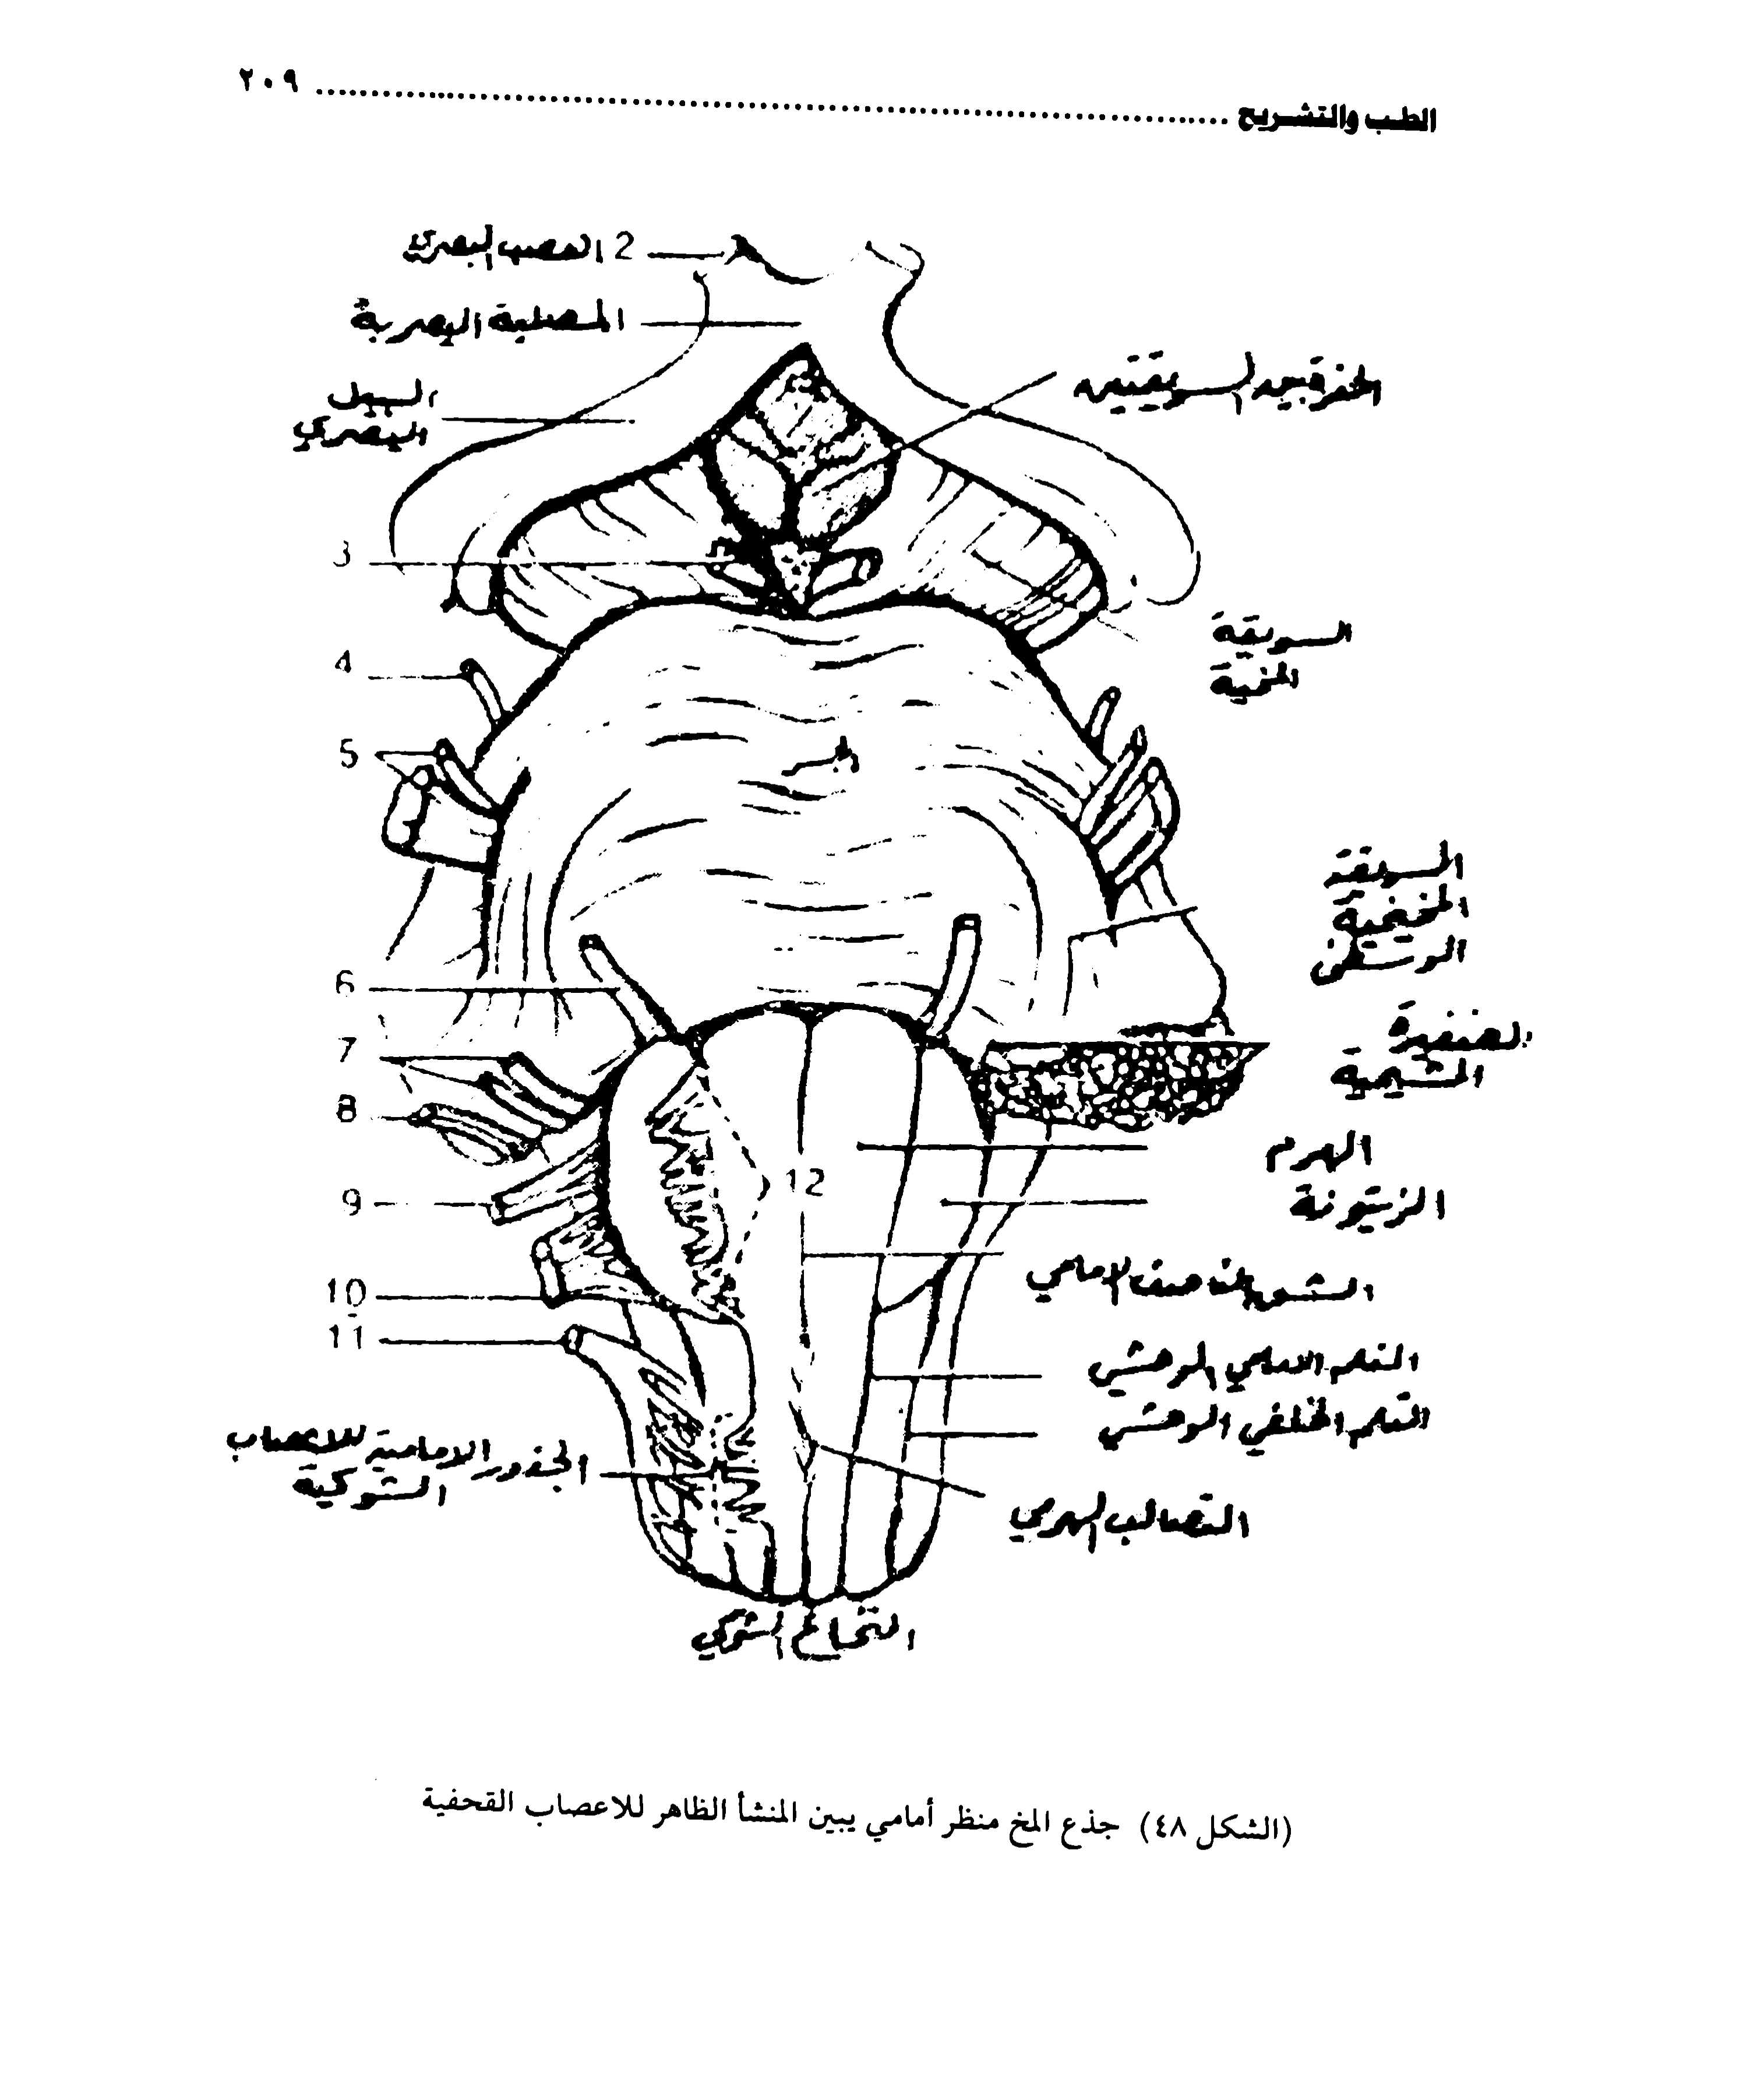 الطب والتشريح ........ ٢٠٩
2 العصب البصري
المصلبة البصرية
السبيل
البصري
الحفرة بين السويقتين
3
السويقة
المخية
4
5
السويقة
المخيخية
الوسطى
6
الضفيرة
المشيمية
7
8
الهرم
12
9
الزيتونة
الشق الناصف الامامي
10
11
التلم الامامي الوحشي
التلم الخلفي الوحشي
الجذور الامامية للاعصاب
الشوكية
التصالب الهرمي
النخاع الشوكي
(الشكل ٤٨) جذع المخ منظر أمامي يبين المنشأ الظاهر للاعصاب القحفية